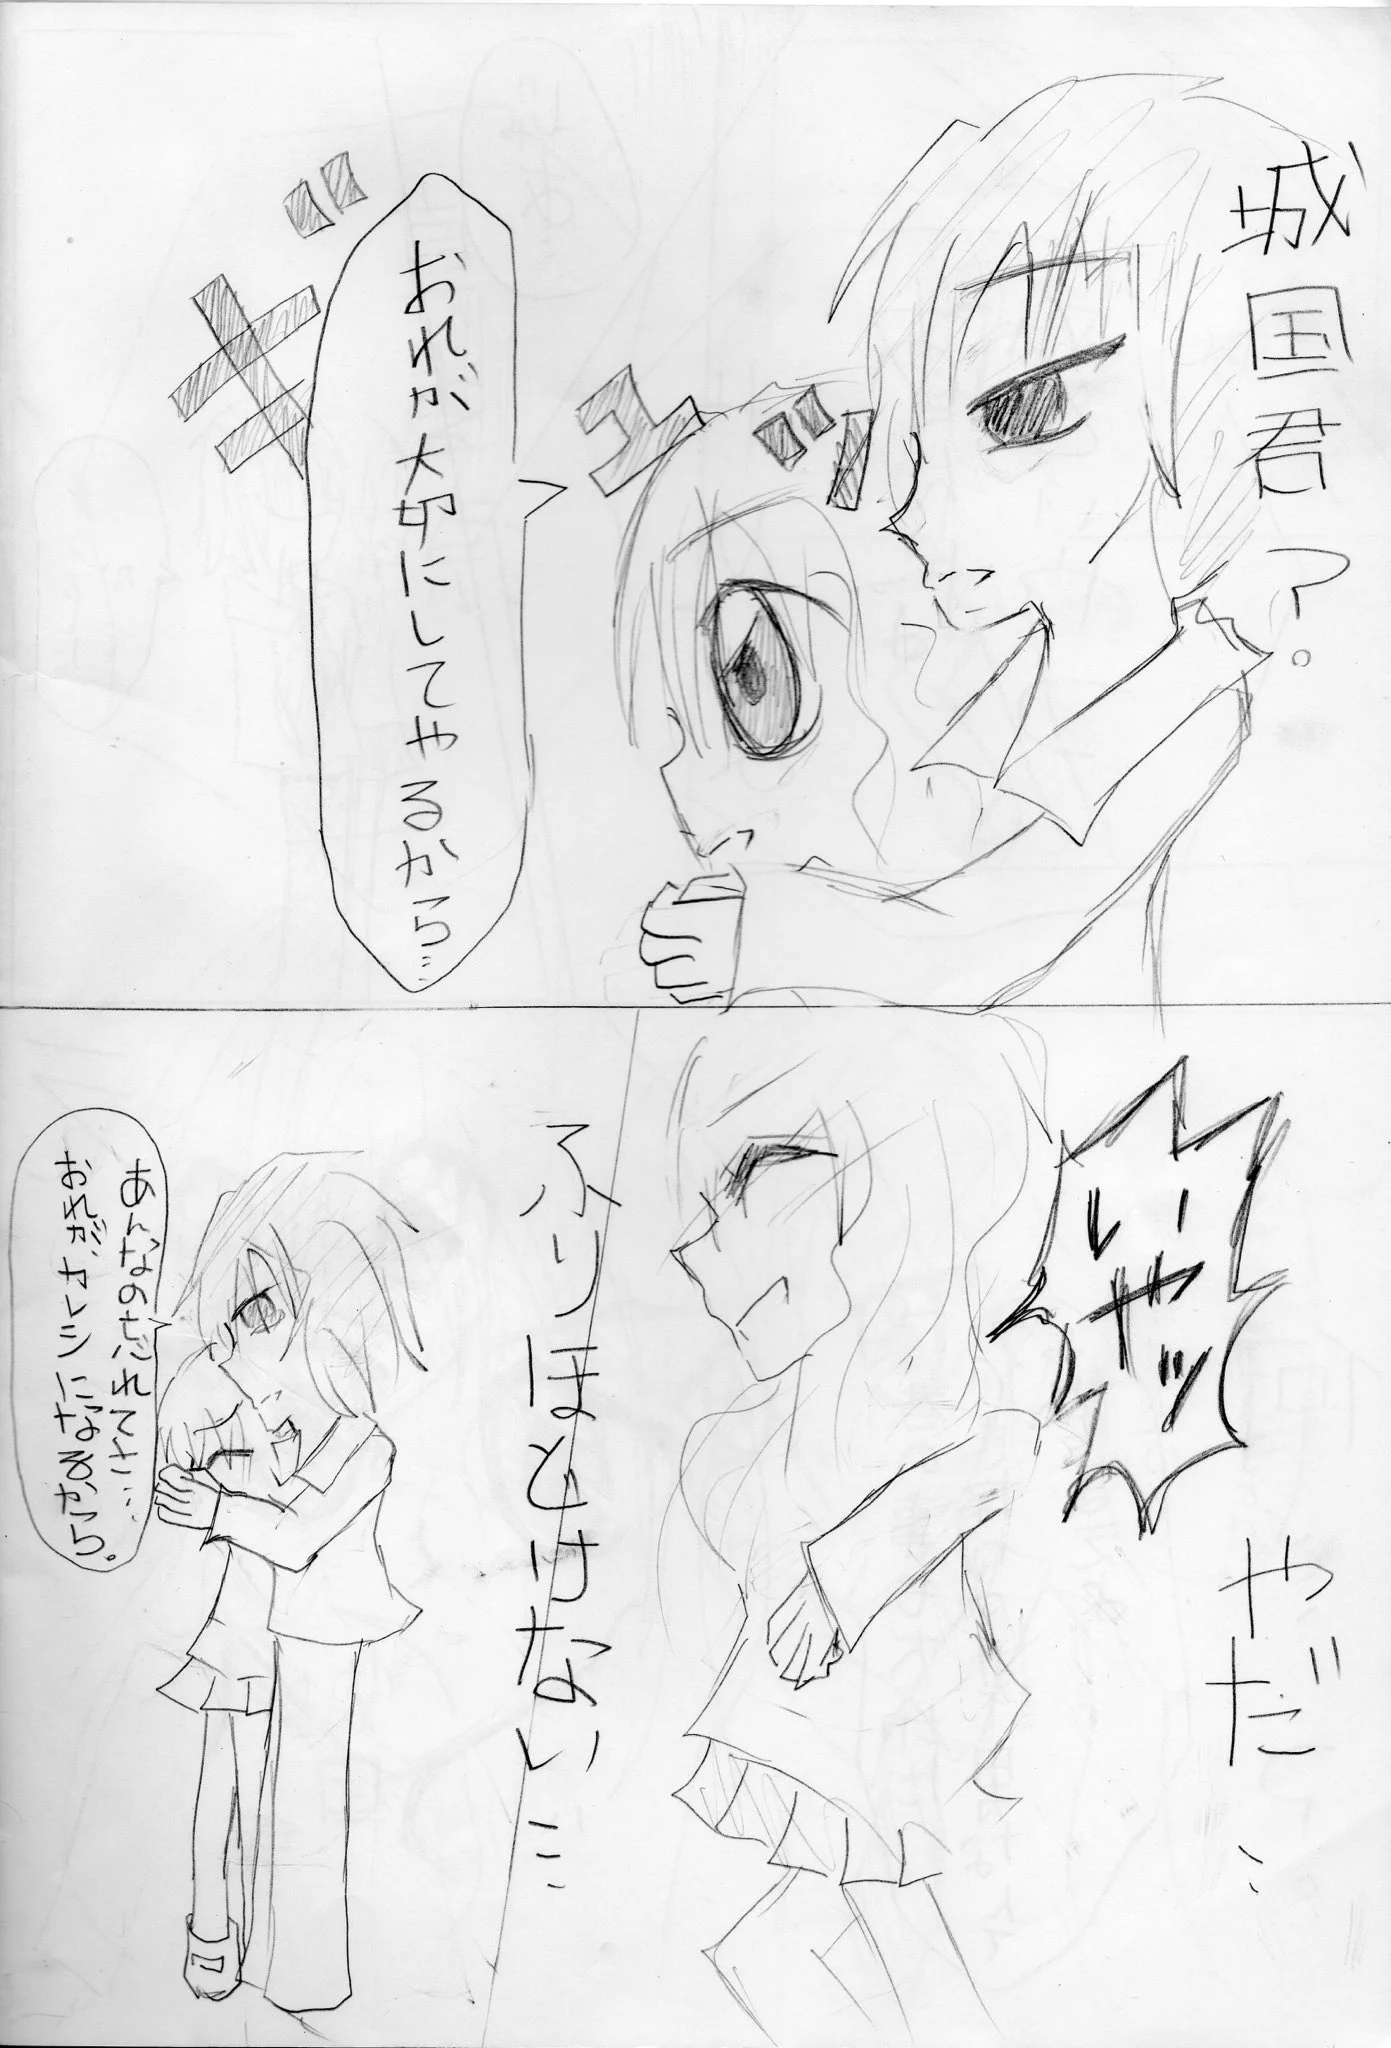 城国君?
ギュッ
おれが大切にしてやるから…
いやッ
やだ…
ふりほどけない…
あんなのわすれてさ…
おれがカレシになるから。